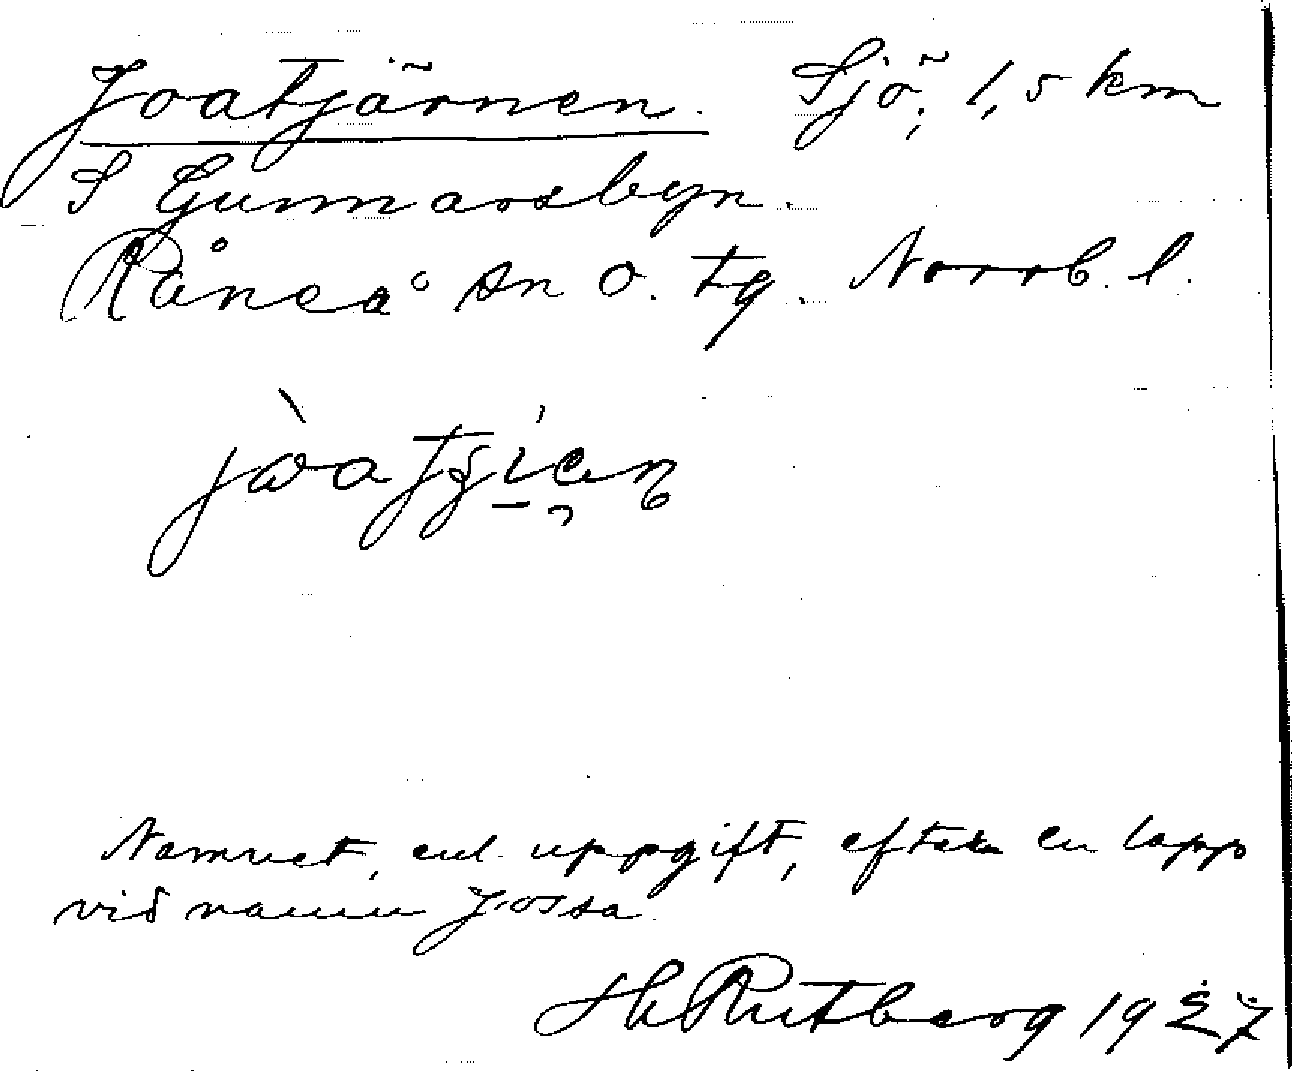 Joatjärnen. Sjö; 1,5 km
S Gunnarsbyn.
Råneå sn o. tg. Norrb. l.
Namnet, enl. uppgift, efter en lapp
vid namn Jossa.
H Rutberg 1927